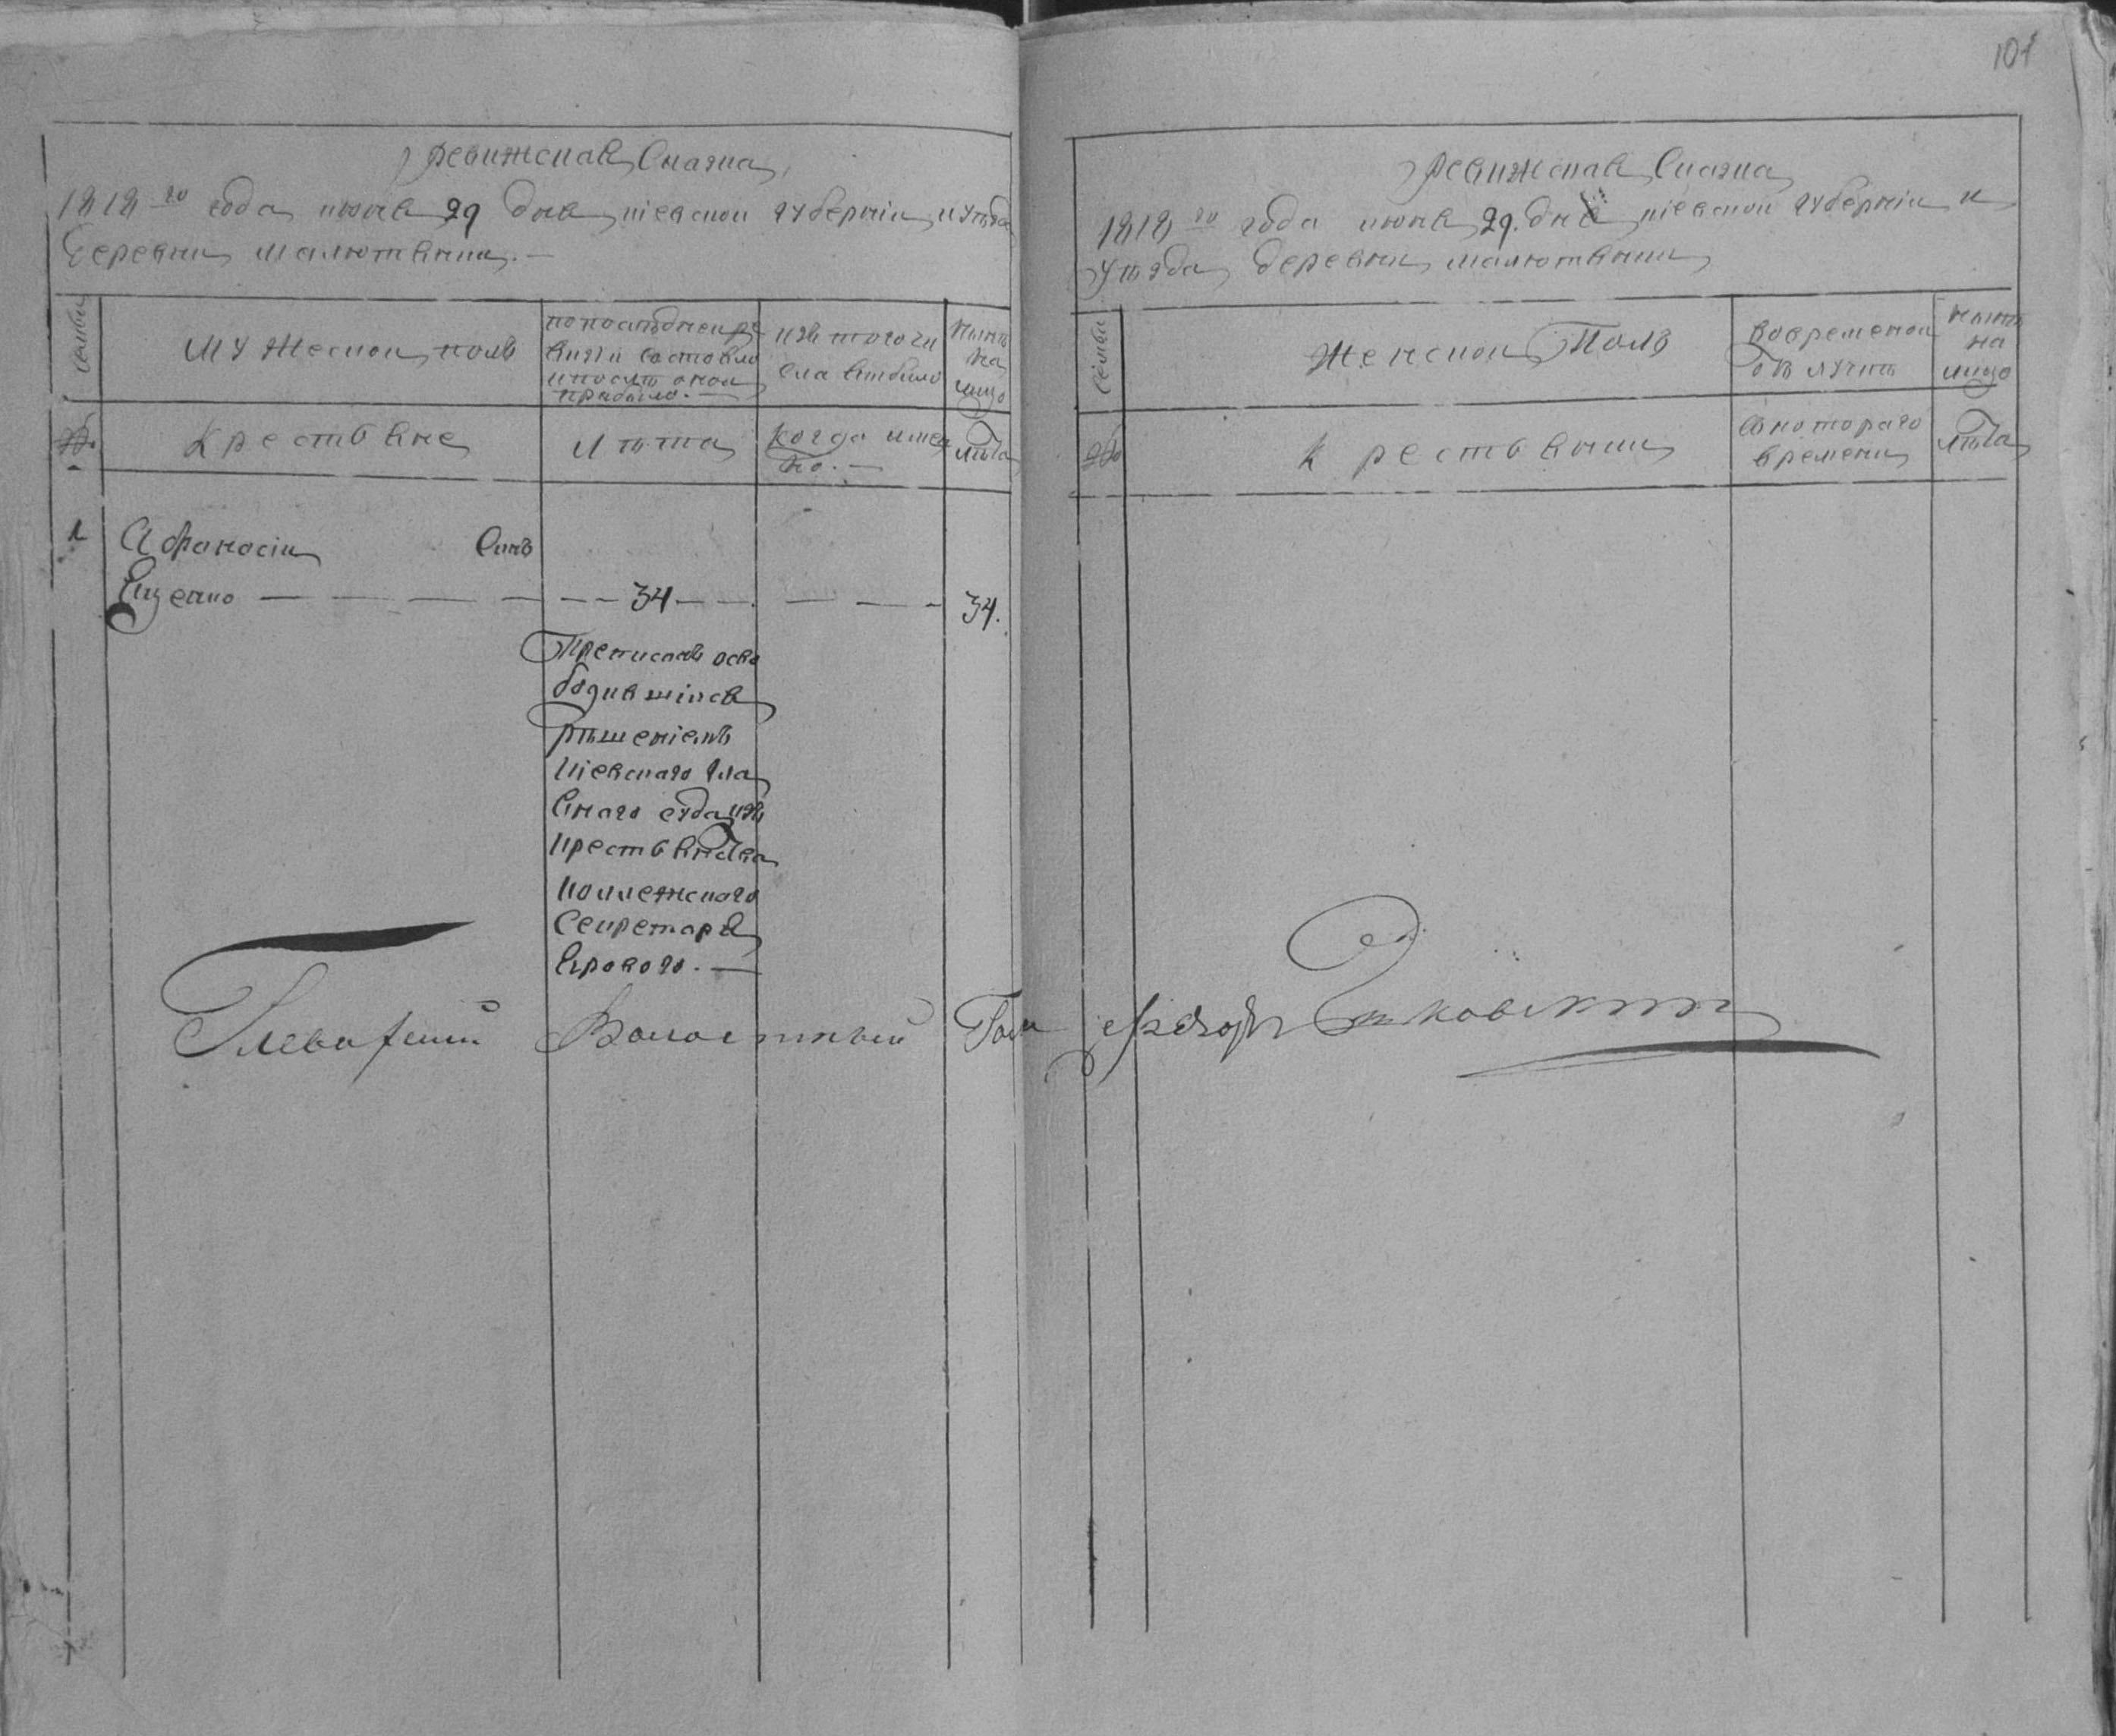 101
ревижская Сказка
1818 го года июня 29 дня киевской губерніи и уѣзда
деревни малютянки. —
семьи
мужеской полъ
попослѣдней ре
визіи состояло
и послѣ оной
прибыло. —
изъ того чи
сла выбыло
нынѣ
на
лицо
№.
Крестьяне
Лѣта
когда имен
но. —
лѣта
1
Афанасіи Синъ
34 34.
осво
бодившійся
рѣшеніемъ
кіевского гла
вного суда изъ
крестьянства
коллежского
Секретаря
Волостный Голо
ревижская Сказка
1818 го года июня 29. дня киевской губерніи и
уѣзда деревни малютянки
семьи
Женской Полъ
вовременой
отлучкѣ
нынѣ
на
лицо
№
Крестьянки
Скотораго
времени
лѣта